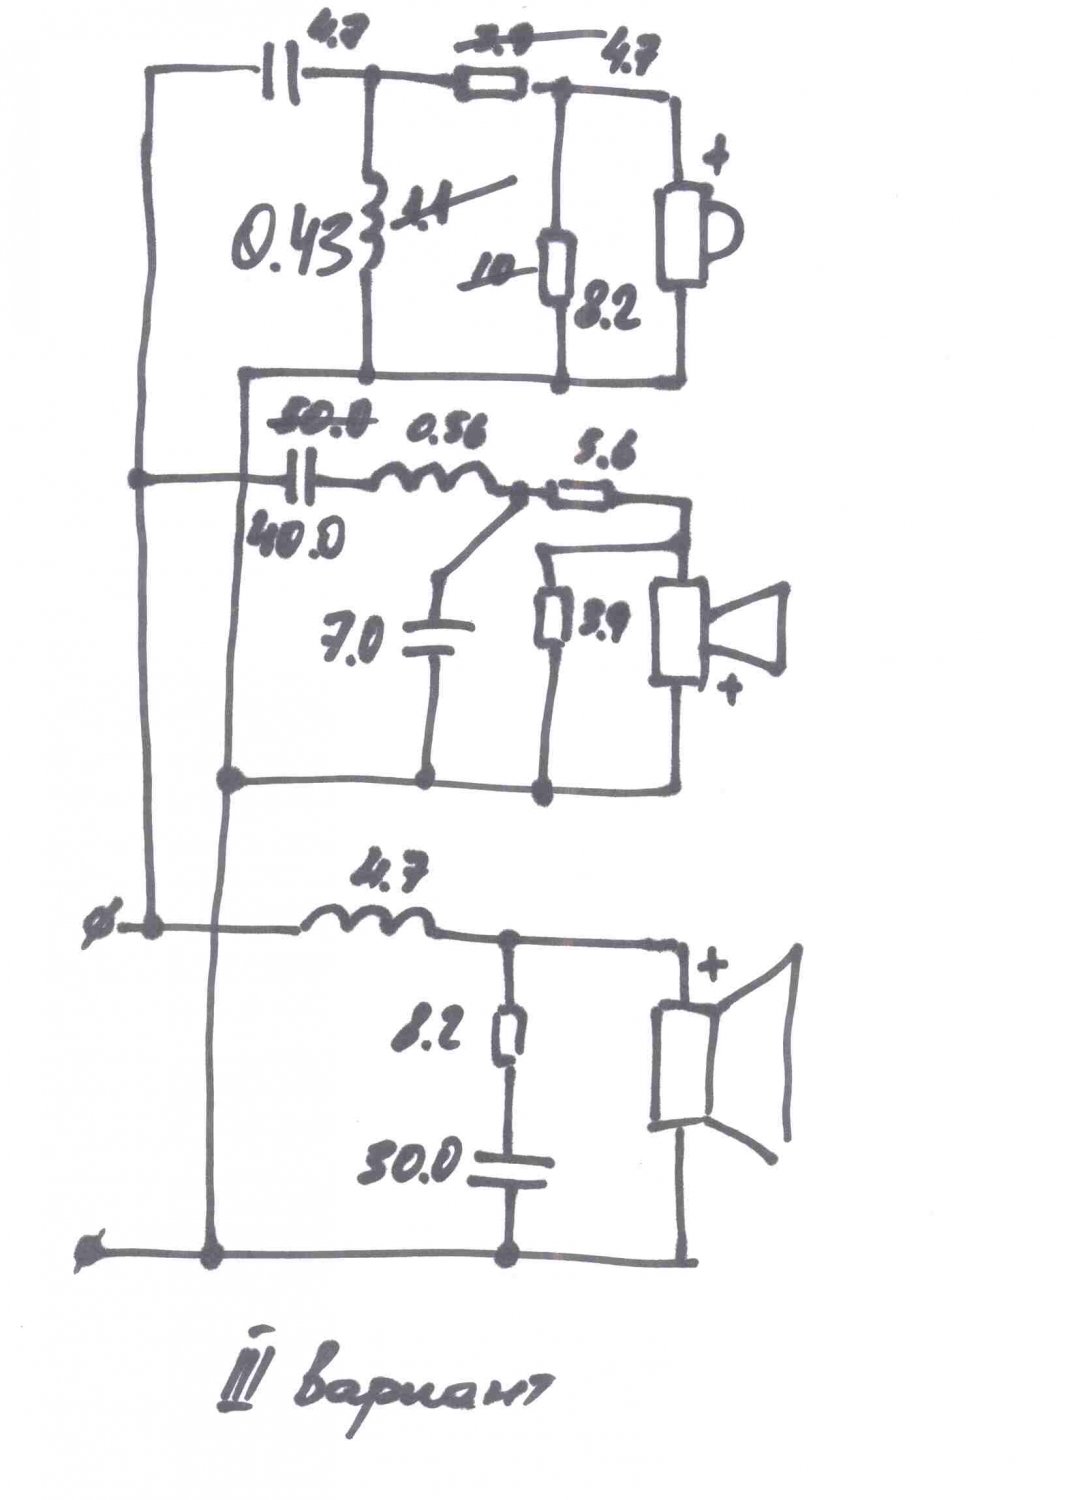 4.7
3.9 4.7
+
0.43
1.1
10
8.2
50.0
0.56
5.6
40.0
7.0
3.9
+
4.7
+
8.2
30.0
III вариант